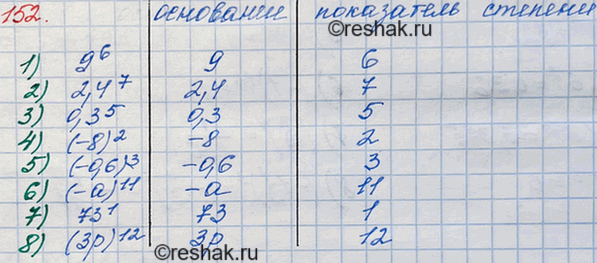 ©reshak.ru
152. основании показатель степени
1) 9⁶ 9 6
2) 2,4⁷ 2,4 7
3) 0,3⁵ 0,3 5
4) (-8)² -8 2
5) (-0,6)³ -0,6 3
6) (-a)¹¹ -a 11
7) 73¹ 73 1
8) (3p)¹² 3p 12
©reshak.ru